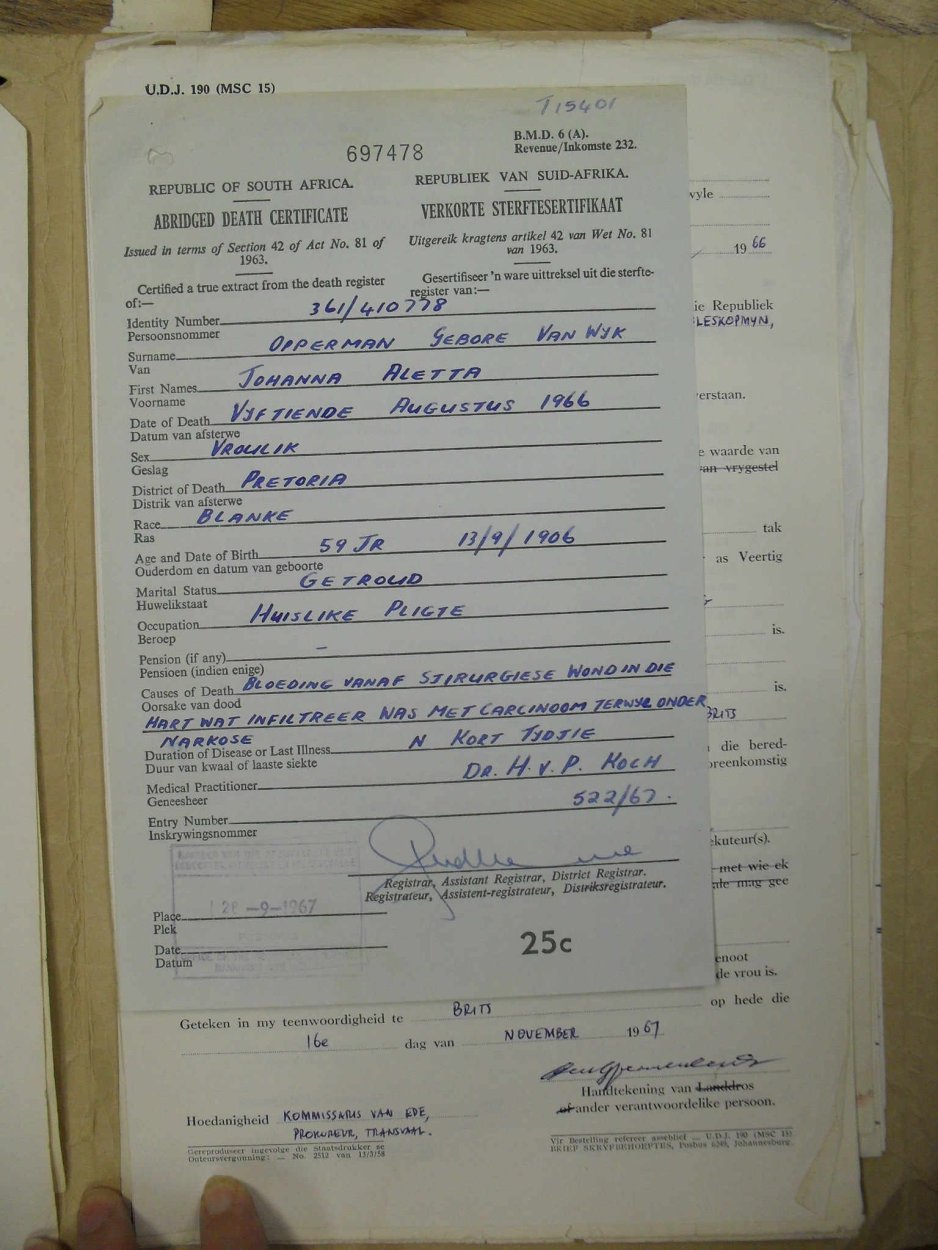 U.D.J. 190 (MSC 15)
T15401
697478
B.M.D. 6 (A).
Revenue/Inkomste 232.
REPUBLIC OF SOUTH AFRICA.
REPUBLIEK VAN SUID-AFRIKA.
ABRIDGED DEATH CERTIFICATE
VERKORTE STERFTESERTIFIKAAT
Issued in terms of Section 42 of Act No. 81 of
1963.
Uitgereik kragtens artikel 42 van Wet No. 81
van 1963.
Certified a true extract from the death register
of:—
Gesertifiseer 'n ware uittreksel uit die sterfte-
register van:—
Identity Number 361/410778
Persoonsnommer
Surname OPPERMAN GEBORE VAN WYK
Van
First Names JOHANNA ALETTA
Voorname
Date of Death VYFTIENDE AUGUSTUS 1966
Datum van afsterwe
Sex VROULIK
Geslag
District of Death PRETORIA
Distrik van afsterwe
Race BLANKE
Ras
Age and Date of Birth 59 JR 13/9/1906
Ouderdom en datum van geboorte
Marital Status GETROUD
Huwelikstaat
Occupation HUISLIKE PLIGTE
Beroep
Pension (if any) –
Pensioen (indien enige)
Causes of Death BLOEDING VANAF SJIRURGIESE WOND IN DIE
Oorsake van dood
HART WAT INFILTREER WAS MET CARCINOOM TERWYL ONDER
NARKOSE
Duration of Disease or Last Illness N KORT TYDJIE
Duur van kwaal of laaste siekte
Medical Practitioner DR. H. V. P. KOCH
Geneesheer
Entry Number 522/67.
Inskrywingsnommer
Registrar, Assistant Registrar, District Registrar.
Registrateur, Assistent-registrateur, Distriksregistrateur.
28 -9-1967
Place
Plek
Date
Datum
25c
wyle
1966
ie Republiek
LESKOPMYN,
erstaan.
e waarde van
van vrygestel
tak
as Veertig
is.
is.
BRITS
die bered-
oreenkomstig
kuteur(s).
met wie ek
ale mag gee
enoot
de vrou is.
op hede die
Geteken in my teenwoordigheid te BRITS
16e dag van NOVEMBER 1967
Handtekening van Landdros
of ander verantwoordelike persoon.
Hoedanigheid KOMMISSARIS VAN EDE,
PROKUREUR, TRANSVAAL.
Gereproduseer ingevolge die Staatsdrukker se
Outeursvergunning: — No. 2512 van 13/5/58
Vir Bestelling refereer asseblief — U.D.J. 190 (MSC 15)
BRIEF SKRYFBEHOEFTES, Posbus 6249, Johannesburg.